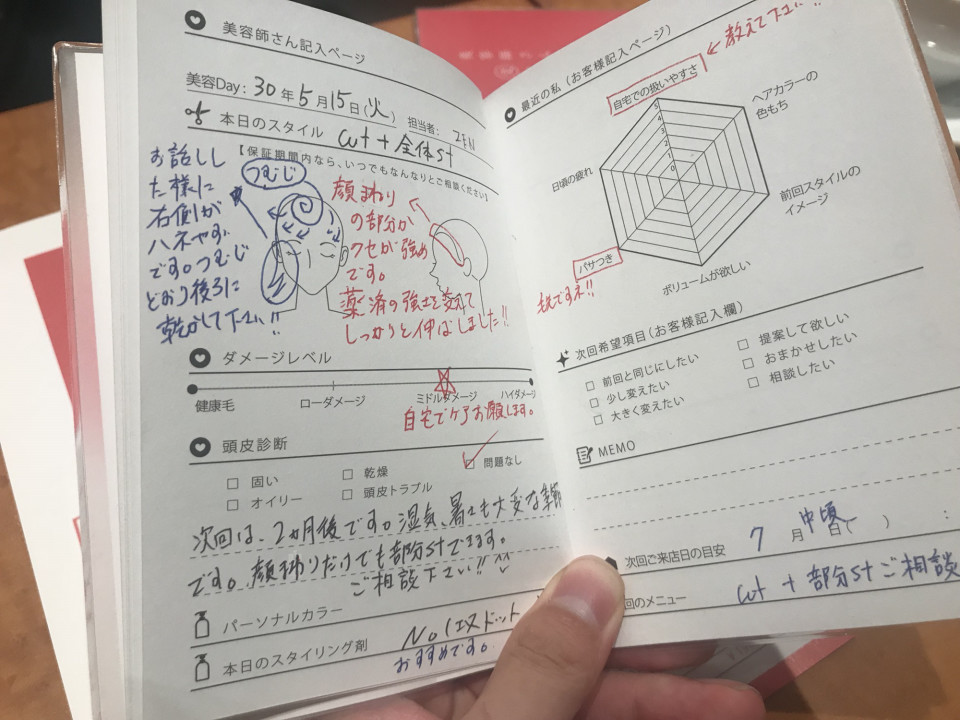 美容師さん記入ページ
美容Day: 30年5月15日(火) 担当者: IEN
本日のスタイル cut + 全体st
【保証期間内なら、いつでもなんなりとご相談ください】
お話しし
た様に
右側が
ハネやすい
です。つむじ
どおり後ろに
乾かして下さい!!
つむじ
顔まわり
の部分が
クセが強め
です。
薬済の強さを変えて
しっかりと伸ばしました!!
ダメージレベル
健康毛 ローダメージ ミドルダメージ ハイダメージ
自宅でケアお願いします。
頭皮診断
□ 固い □ 乾燥 □ 問題なし
□ オイリー □ 頭皮トラブル
次回は、2ヵ月後です。湿気、暑さも大変な季節
です。顔まわりだけでも部分stできます。
ご相談下さい!!
パーソナルカラー
本日のスタイリング剤 No1エヌドット
おすすめです。
最近の私(お客様記入ページ)
教えて下さい!!
自宅での扱いやすさ
ヘアカラーの
色もち
5
4
3
2
1
0
日頃の疲れ
前回スタイルの
イメージ
パサつき
ボリュームが欲しい
次回希望項目(お客様記入欄)
□ 前回と同じにしたい □ 提案して欲しい
□ 少し変えたい □ おまかせしたい
□ 大きく変えたい □ 相談したい
MEMO
次回ご来店日の目安 7月中頃日( ) :
回のメニュー cut + 部分stご相談